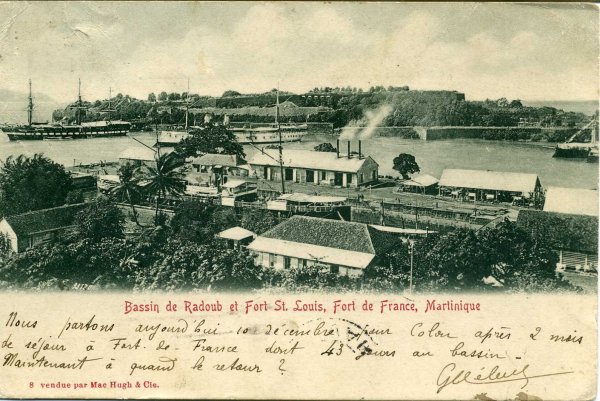 Bassin de Radoub et Fort St. Louis, Fort de France, Martinique
Nous partons aujourd'hui 10 décembre pour Colon après 2 mois
de séjour à Fort de France doit 43 jours au bassin -
Maintenant à quand le retour ?
8 vendue par Mac Hugh & Cie.